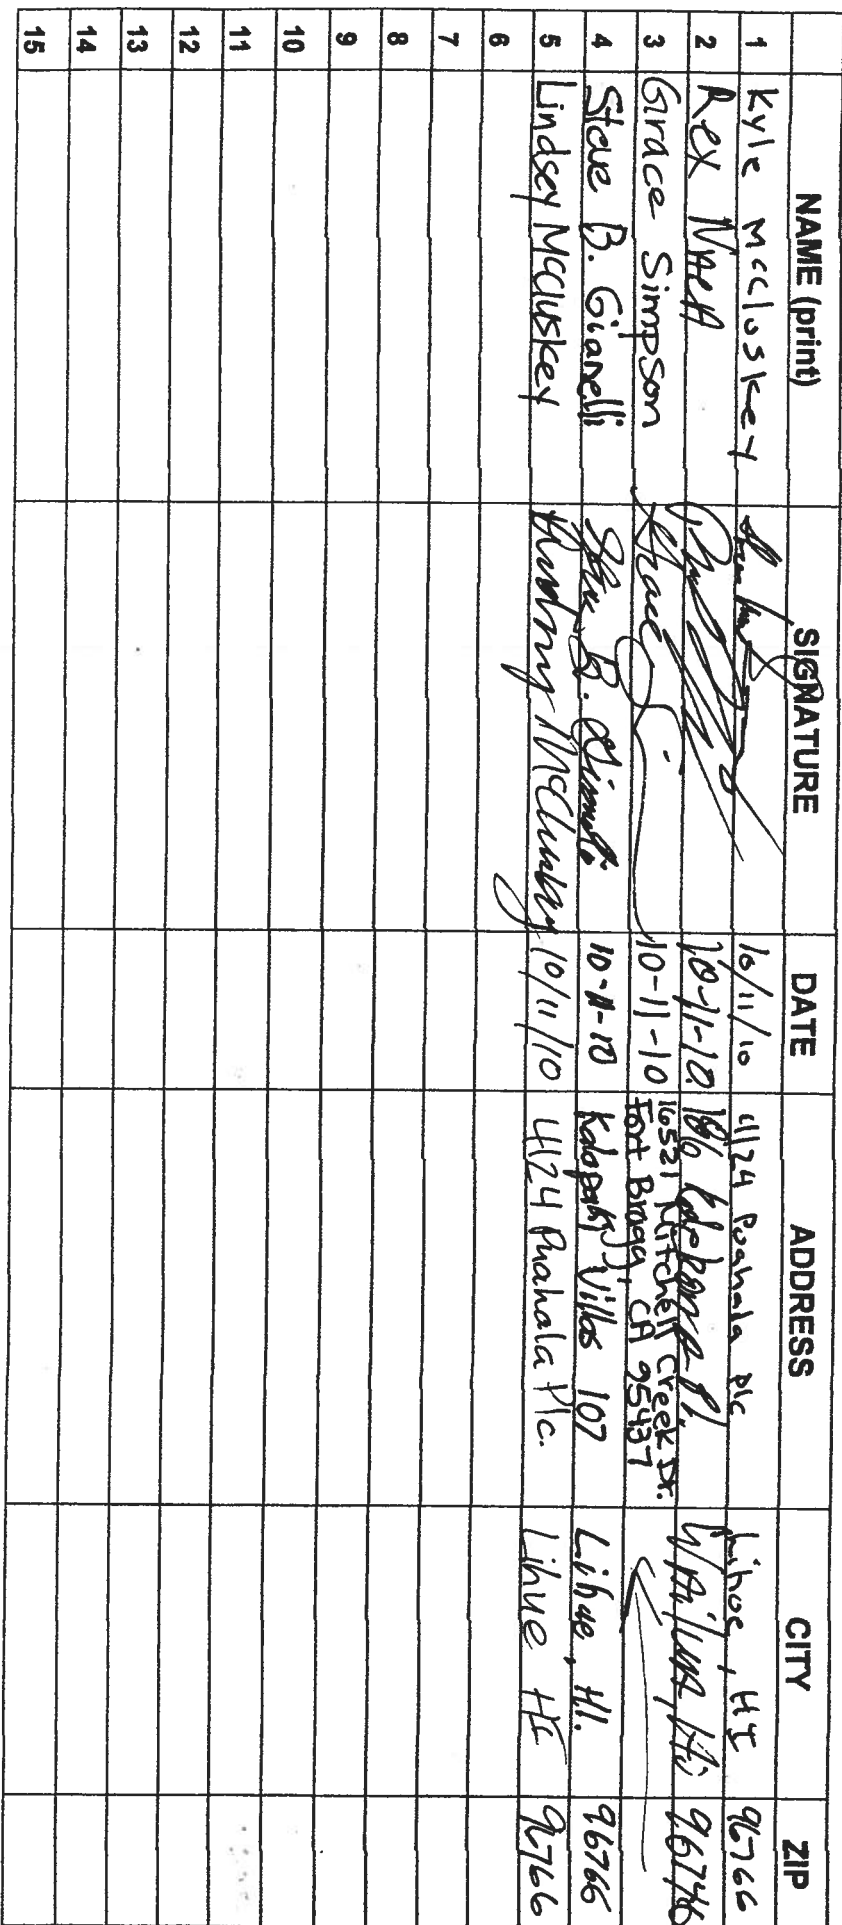 NAME (print) SIGNATURE DATE ADDRESS CITY ZIP
1 Kyle McCluskey 10/11/10 4124 Puahala plc Lihue, HI 96766
2 Rex 10-11-10 Wailua, Hi 96746
3 Grace Simpson Grace 10-11-10 16521 Mitchell Creek Dr.
Fort Bragg CA 95437
4 Steve B. Gianelli Steve B. Gianelli 10-11-10 Kalapaki Villas 107 Lihue, HI. 96766
5 Lindsey McCluskey Lindsey McCluskey 10/11/10 4124 Puahala Plc. Lihue HI 96766
6
7
8
9
10
11
12
13
14
15